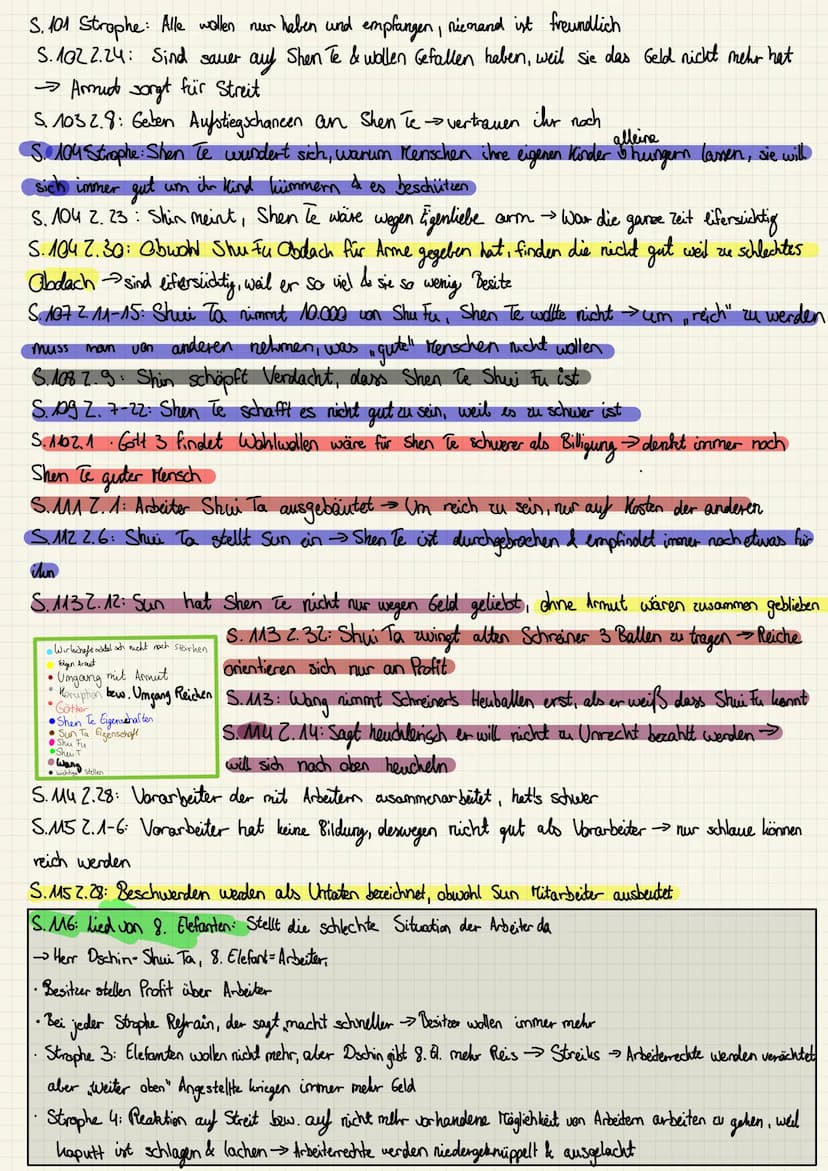 S.101 Strophe: Alle wollen nur haben und empfangen, niemand ist freundlich
S.102 Z.24: Sind sauer auf Shen Te & wollen Gefallen haben, weil sie das Geld nicht mehr hat
→ Armut sorgt für Streit
S.103 Z.8: Geben Aufstiegschancen an Shen Te → vertrauen ihr noch
alleine
S.104 Strophe: Shen Te wundert sich, warum Menschen ihre eigenen Kinder hungern lassen, sie will
sich immer gut um ihr Kind kümmern & es beschützen
S.104 Z.23: Shin meint, Shen Te wäre wegen Eigenliebe arm → War die ganze Zeit eifersüchtig
S.104 Z.30: Obwohl Shu Fu Obdach für Arme gegeben hat, finden die nicht gut weil zu schlechtes
Obdach → sind eifersüchtig, weil er so viel & sie so wenig Besitz
S.107 Z.11-15: Shui Ta nimmt 10.000 von Shu Fu, Shen Te wollte nicht → um „reich" zu werden
muss man von anderen nehmen, was „gute" Menschen nicht wollen
S.108 Z.9: Shin schöpft Verdacht, dass Shen Te Shui Fu ist
S.109 Z.7-22: Shen Te schafft es nicht gut zu sein, weil es zu schwer ist
S.110 Z.1: Gott 3 findet Wohlwollen wäre für Shen Te schwerer als Billigung → denkt immer noch
Shen Te guter Mensch
S.111 Z.1: Arbeiter Shui Ta ausgebäutet → Um reich zu sein, nur auf Kosten der anderen
S.112 Z.6: Shui Ta stellt Sun ein → Shen Te ist durchgebrochen & empfindet immer noch etwas für
ihn
S.113 Z.12: Sun hat Shen Te nicht nur wegen Geld geliebt, ohne Armut wären zusammen geblieben
S.113 Z.32: Shui Ta zwingt alten Schreiner 3 Ballen zu tragen → Reiche
orientieren sich nur an Profit
S.113: Wang nimmt Schreiners Heuballen erst, als er weiß dass Shui Fu kommt
S.114 Z.14: Sagt heuchlerisch er will nicht zu Unrecht bezahlt werden →
will sich nach oben heucheln
sich nicht nach Stärken
Armut
Umgang mit Armut
Koruption bzw. Umgang Reichen
Götter
Shen Te Eigenschaften
Sun Ta Eigenschaft
Shu Fu
Shui T
Wang
wichtige Stellen
S.114 Z.28: Vorarbeiter der mit Arbeitern zusammenarbeitet, hat's schwer
S.115 Z.1-6: Vorarbeiter hat keine Bildung, deswegen nicht gut als Vorarbeiter → nur schlaue können
reich werden
S.115 Z.28: Beschwerden werden als Untaten bezeichnet, obwohl Sun Mitarbeiter ausbeutet
S.116: Lied von 8. Elefanten: Stellt die schlechte Situation der Arbeiter da
→ Herr Dschin = Shui Ta, 8. Elefant = Arbeiter,
· Besitzer stellen Profit über Arbeiter
· Bei jeder Strophe Refrain, der sagt, macht schneller → Besitzer wollen immer mehr
· Strophe 3: Elefanten wollen nicht mehr, aber Dschin gibt 8. El. mehr Reis → Streiks → Arbeiterrechte werden verachtet
aber „weiter oben" Angestellte kriegen immer mehr Geld
· Strophe 4: Reaktion auf Streit bzw. auf nicht mehr vorhandene Möglichkeit von Arbeitern arbeiten zu gehen, weil
kaputt ist schlagen & lachen → Arbeiterrechte werden niedergeknüppelt & ausgelacht